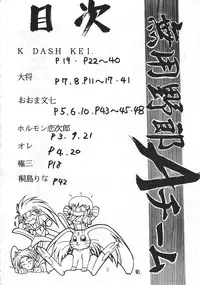 目次
無用野郎Aチーム
K DASH KEI.
P19・P22〜40
大将
P7.8.P11〜17・41
おおま文七
P5.6.10.P43〜45・48
ホルモン恋次郎
P3.9.21
オレ
P4.20
極三
P18
桐島りな
P42